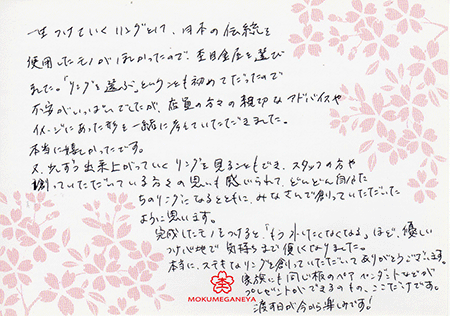 一生つけていくリングとして、日本の伝統を
使用したモノがほしかったので、杢目金屋を選び
ました。「リングを選ぶ」ということも初めてだったので
不安がいっぱいでしたが、店員の方々の親切なアドバイスや
イメージにあった形を一緒に考えていただきました。
本当に嬉しかったです。
又、少しずつ出来上がっていくリングを見ることもでき、スタッフの方や
創っていただいている方々の思いも感じられて、どんどん自分た
ちのリングになるとともに、みなさんで創っていただいた
ように思います。
完成したモノをつけると、「もう外したくなくなる」ほど、優しい
つけ心地で 気持ちまで優しくなりました。
本当に、ステキなリングを創っていただいてありがとうございます。
家族にも同じ板のペアペンダントなどが
プレゼントができるのも、ここだけです。
渡す日が今から楽しみです!
MOKUMEGANEYA